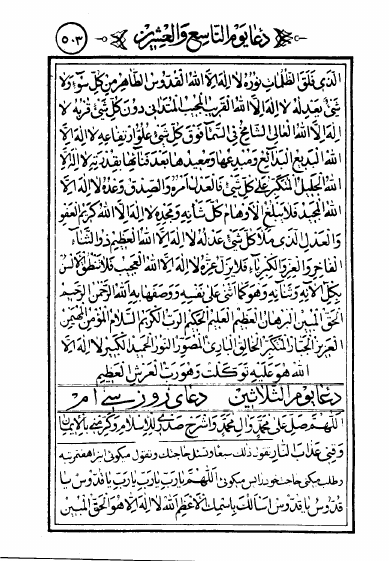 دعا يوم التاسع والعشرين ٥٠٣
الذى فلق الظلمات بنوره لا اله الا الله القدوس الطاهر من كل سوء ولا
شئ يعدله لا اله الا الله القريب المجيب المتدانى دون كل شئ قربه لا
اله الا الله العالى الشامخ فى السماء فوق كل شئ علو ارتفاعه لا اله الا
الله البديع البدائع ومبدعها ومعيدها بعد فنائها بقدرته لا اله الا
الله الجليل المتكبر على كل شئ فالعدل امره والصدق وعده لا اله الا
الله المجيد فلا تبلغ الاوهام كل شانه ومجده لا اله الا الله كريم العفو
والعدل الذى ملأ كل شئ عدله لا اله الا الله العظيم ذو الثناء
الفاخر والعز والكبرياء فلا يزل عزه لا اله الا الله العجيب فلا تنطق الالسن
بكل الائه وثنائه وهو كما اثنى على نفسه ووصفها به الله الرحمن الرحيم
الحق المبين البرهان العظيم العليم الحكيم الرب الكريم السلام المؤمن المهيمن
العزيز الجبار المتكبر الخالق البارئ المصور النور الحميد الكبير لا اله الا
الله هو عليه توكلت وهو رب العرش العظيم
دعا يوم الثلاثين دعاى روز سى ام
اللهم صل على محمد وال محمد واشرح صدرى للاسلام وكرمنى بالايمان
وقنى عذاب النار تقول ذلك سبعا وتسئل حاجتك وتقول ميكوئى اين هفت مرتبه
وطلب ميكنى حاجت خود را پس ميكوئى اللهم يا رب يا رب يا رب يا رب يا قدوس يا
قدوس يا قدوس اسالك باسمك الاعظم الله لا اله الا هو الحق المبين